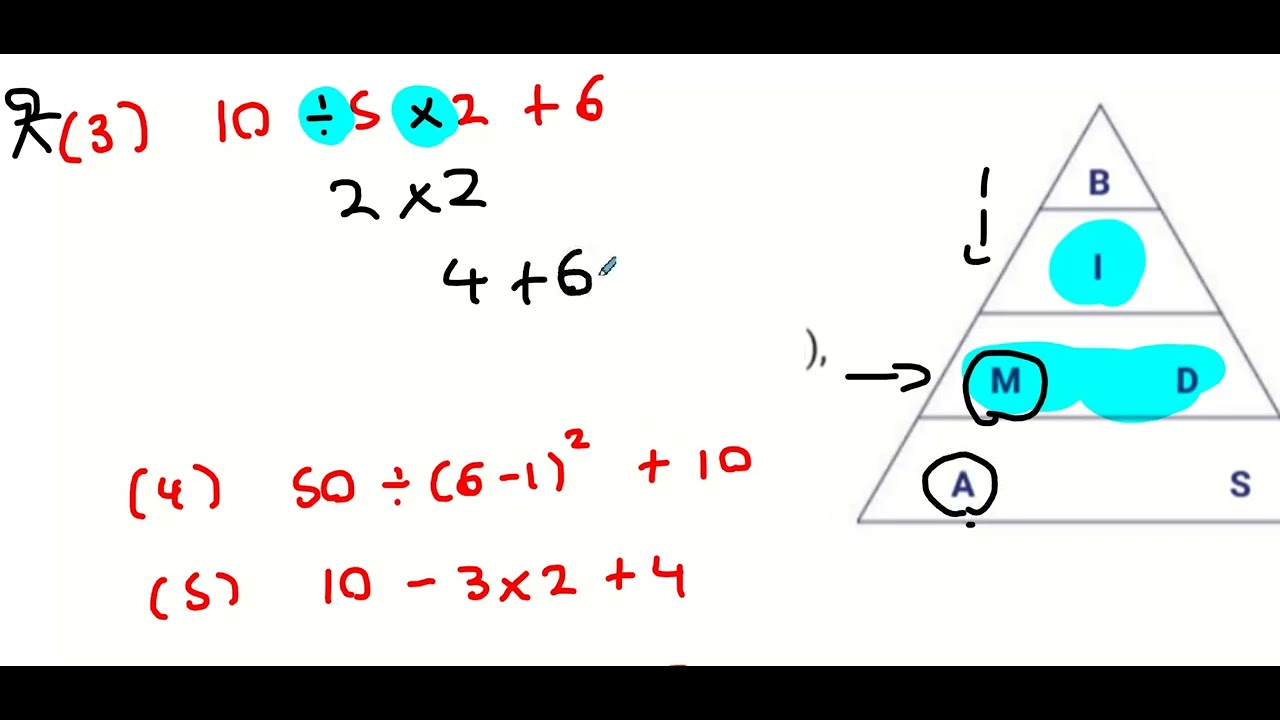 (3) 10 ÷ 5 × 2 + 6
2 × 2
4 + 6
(4) 50 ÷ (6 - 1)² + 10
(5) 10 - 3 × 2 + 4
),
B
I
M D
A S